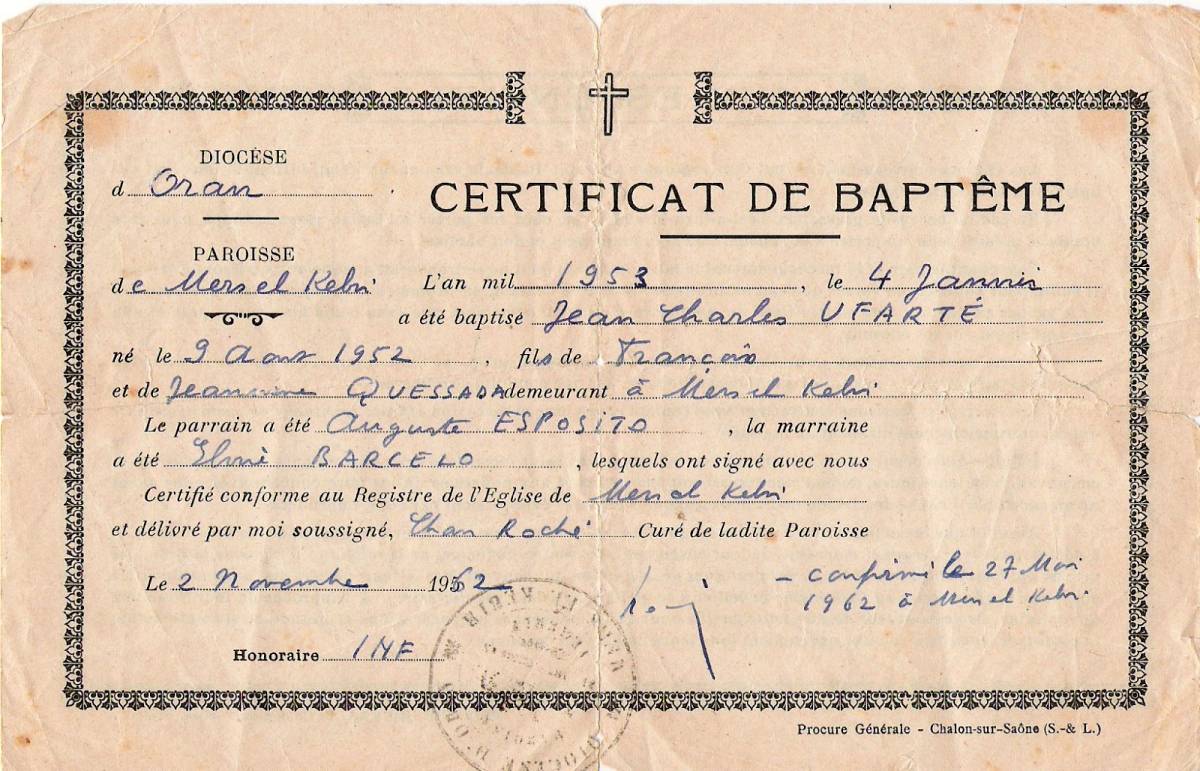 DIOCÈSE
d Oran
CERTIFICAT DE BAPTÊME
PAROISSE
de Mers el Kebir L'an mil 1953, le 4 Janvier
a été baptisé Jean Charles UFARTÉ
né le 9 Aout 1952, fils de François
et de Jeannine QUESSADA demeurant à Mers el Kebir
Le parrain a été Auguste ESPOSITO, la marraine
a été BARCELO, lesquels ont signé avec nous
Certifié conforme au Registre de l'Eglise de Mers el Kebir
et délivré par moi soussigné, Chan Roché Curé de ladite Paroisse
Le 2 Novembre 1962
- confirmé le 27 Mai
1962 à Mers el Kebir
Honoraire 1 NF
DIOCÈSE D'ORAN
Procure Générale - Chalon-sur-Saône (S.-& L.)